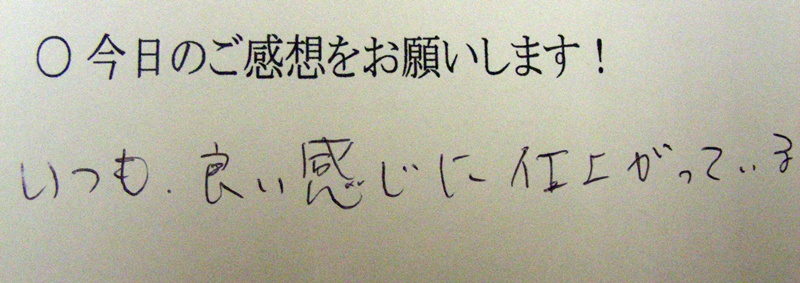 ○今日のご感想をお願いします！
いつも、良い感じに仕上がっている